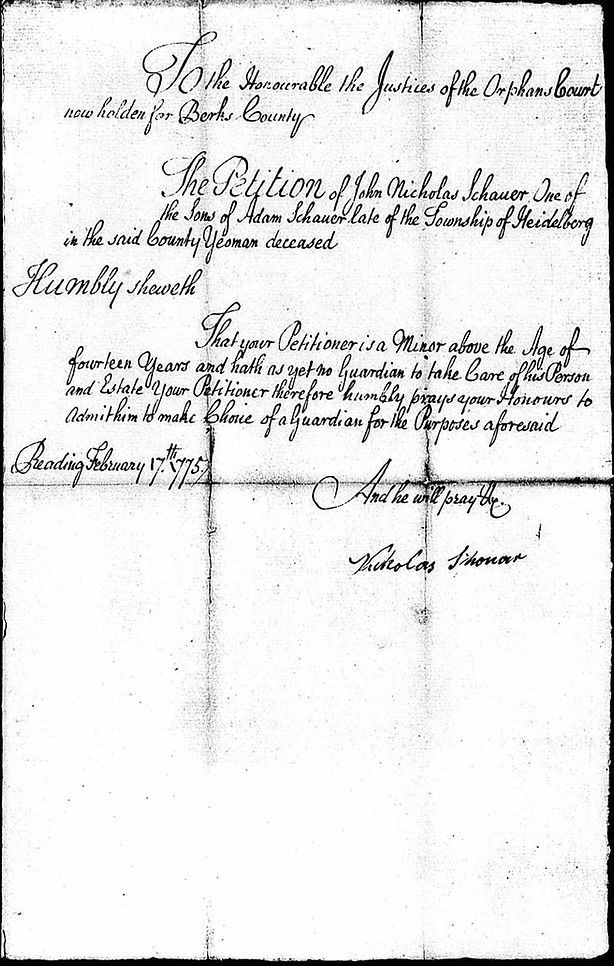 To the Honourable the Justices of the Orphans Court
now holden for Berks County
The Petition of John Nicholas Schauer One of
the Sons of Adam Schauer late of the Township of Heidelberg
in the said County Yeoman deceased
Humbly sheweth
That your Petitioner is a Minor above the Age of
fourteen Years and hath as yet no Guardian to take Care of his Person
and Estate Your Petitioner therefore humbly prays your Honours to
Admit him to make Choice of a Guardian for the Purposes aforesaid
Reading February 17.th 1775.
And he will pray &c.
Nickolas Shouar